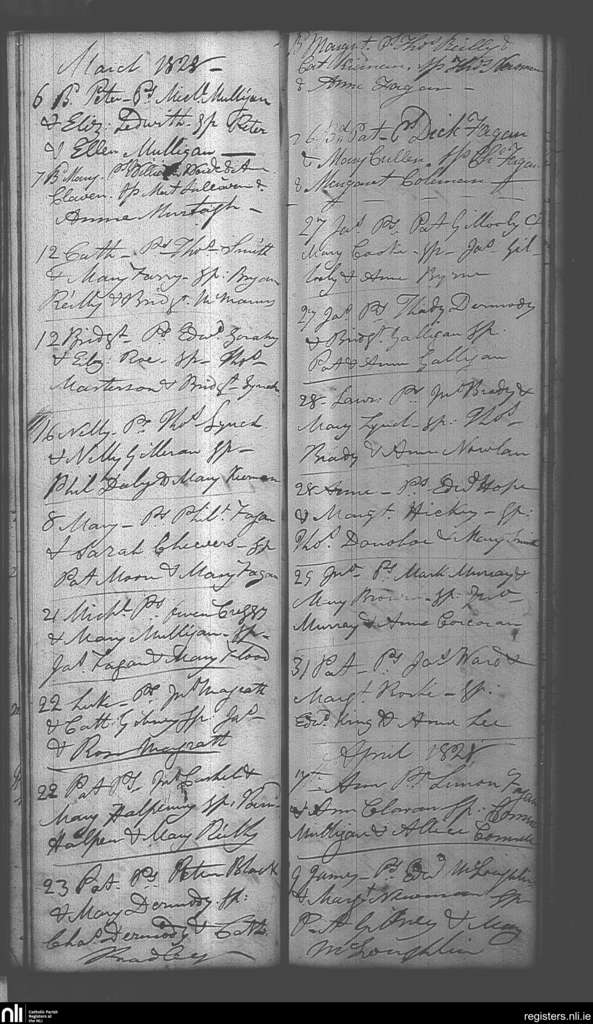 March 1828
6 B. Peter Ps Michl Mulligan
& Eliz: Ledwith Sp Peter
& Ellen Mulligan
7 B Mary Ps
Claven. Sp
Anne Murtagh
12 Cath Ps Thos Smith
& Mary Farry Sp: Bryan
Reilly & Bridgt McManus
12 Bridgt Ps Edwd
& Eliz Roe. Sp Thos
Masterson & Bridgt Lynch
16 Nelly Ps Thos Lynch
& Nelly Gilleran Sp
Phil Daly & Mary Keernan
8 Mary Ps Philt Fagan
& Sarah Cheevers Sp
Pat Moore & Mary Fagan
21 Michl Ps Owen
& Mary Mulligan Sp
Jas Fagan & Mary Flood
22 Luke Ps Jno Magrath
& Cath Gibney Sp Jas
& Rose Magrath
22 Pat Ps Jno Caskel &
Mary Halpenny Sp:
Halpen & Mary Reilly
23 Pat Ps Peter Black
& Mary Dermody Sp:
Chas Dermody & Cath
Bradley
B Margt. Ps Thos Reilly &
Cat Keernan, Sp Thos
& Anne Fagan
26 Pat Ps Dick Fagan
& Mary Cullen Sp Fagan
& Margaret Coleman
27 Jas Ps Pat
Mary Cooke Sp Jas Gil-
& Anne Byrne
27 Jas Ps Thady Dermody
& Bridgt Galligan Sp:
Pat & Anne Galligan
28 Lawr: Ps Jno Brady &
Mary Lynch Sp: Thos
Brady & Anne Nowlan
28 Anne Ps Edwd Hope
& Margt. Hickey Sp:
Thos. Donohoe & Mary Smith
29 Jno Ps Mark Murray &
Mary Brown Sp: Jno
Murray & Anne Corcoran
31 Pat Ps Jas Ward &
Margt. Sp:
Edwd King & Anne Lee
April 1828
Ann Ps Simon Fagan
& Ann Clavan Sp:
Mulligan &
9 James Ps Edwd McLoughlin
& Margt Newman Sp
Pat Gibney & Mary
McLoughlin
nli
Catholic Parish
Registers at
the NLI
registers.nli.ie